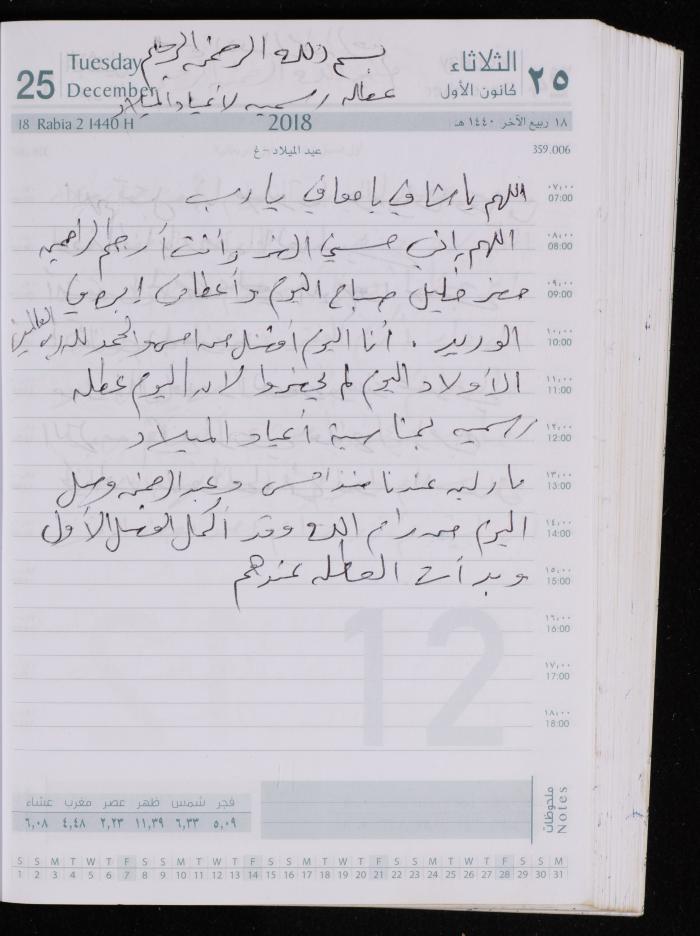 بسم الله الرحمن الرحيم
Tuesday
25
December
الثلاثاء
٢٥
كانون الأول
عطلة رسميه لأعياد الميلاد
18 Rabia 2 1440 H
2018
١٨ ربيع الآخر ١٤٤٠ هـ
عيد الميلاد - غ
359.006
اللهم يا شافي يا معافي يا رب
٠٧,٠٠
07:00
اللهم إني مسني الضر وأنت أرحم الراحمين
٠٨,٠٠
08:00
حضر خليل صباح اليوم وأعطاني إبره في
٠٩,٠٠
09:00
الوريد . أنا اليوم أفضل من امس والحمد لله رب العالمين
١٠,٠٠
10:00
الأولاد اليوم لم يحضروا لان اليوم عطله
١١,٠٠
11:00
رسميه بمناسبة أعياد الميلاد
١٢,٠٠
12:00
عندنا منذ امس وعبد الرحمن وصل
١٣,٠٠
13:00
اليوم من رام الله وقد أكمل الفصل الأول
١٤,٠٠
14:00
وبدأت العطله عندهم
١٥,٠٠
15:00
١٦,٠٠
16:00
١٧,٠٠
17:00
١٨,٠٠
18:00
12
ملحوظات
Notes
فجر شمس ظهر عصر مغرب عشاء
٥,٠٩ ٦,٣٣ ١١,٣٩ ٢,٢٣ ٤,٤٨ ٦,٠٨
S S M T W T F S S M T W T F S S M T W T F S S M T W T F S S M
1 2 3 4 5 6 7 8 9 10 11 12 13 14 15 16 17 18 19 20 21 22 23 24 25 26 27 28 29 30 31